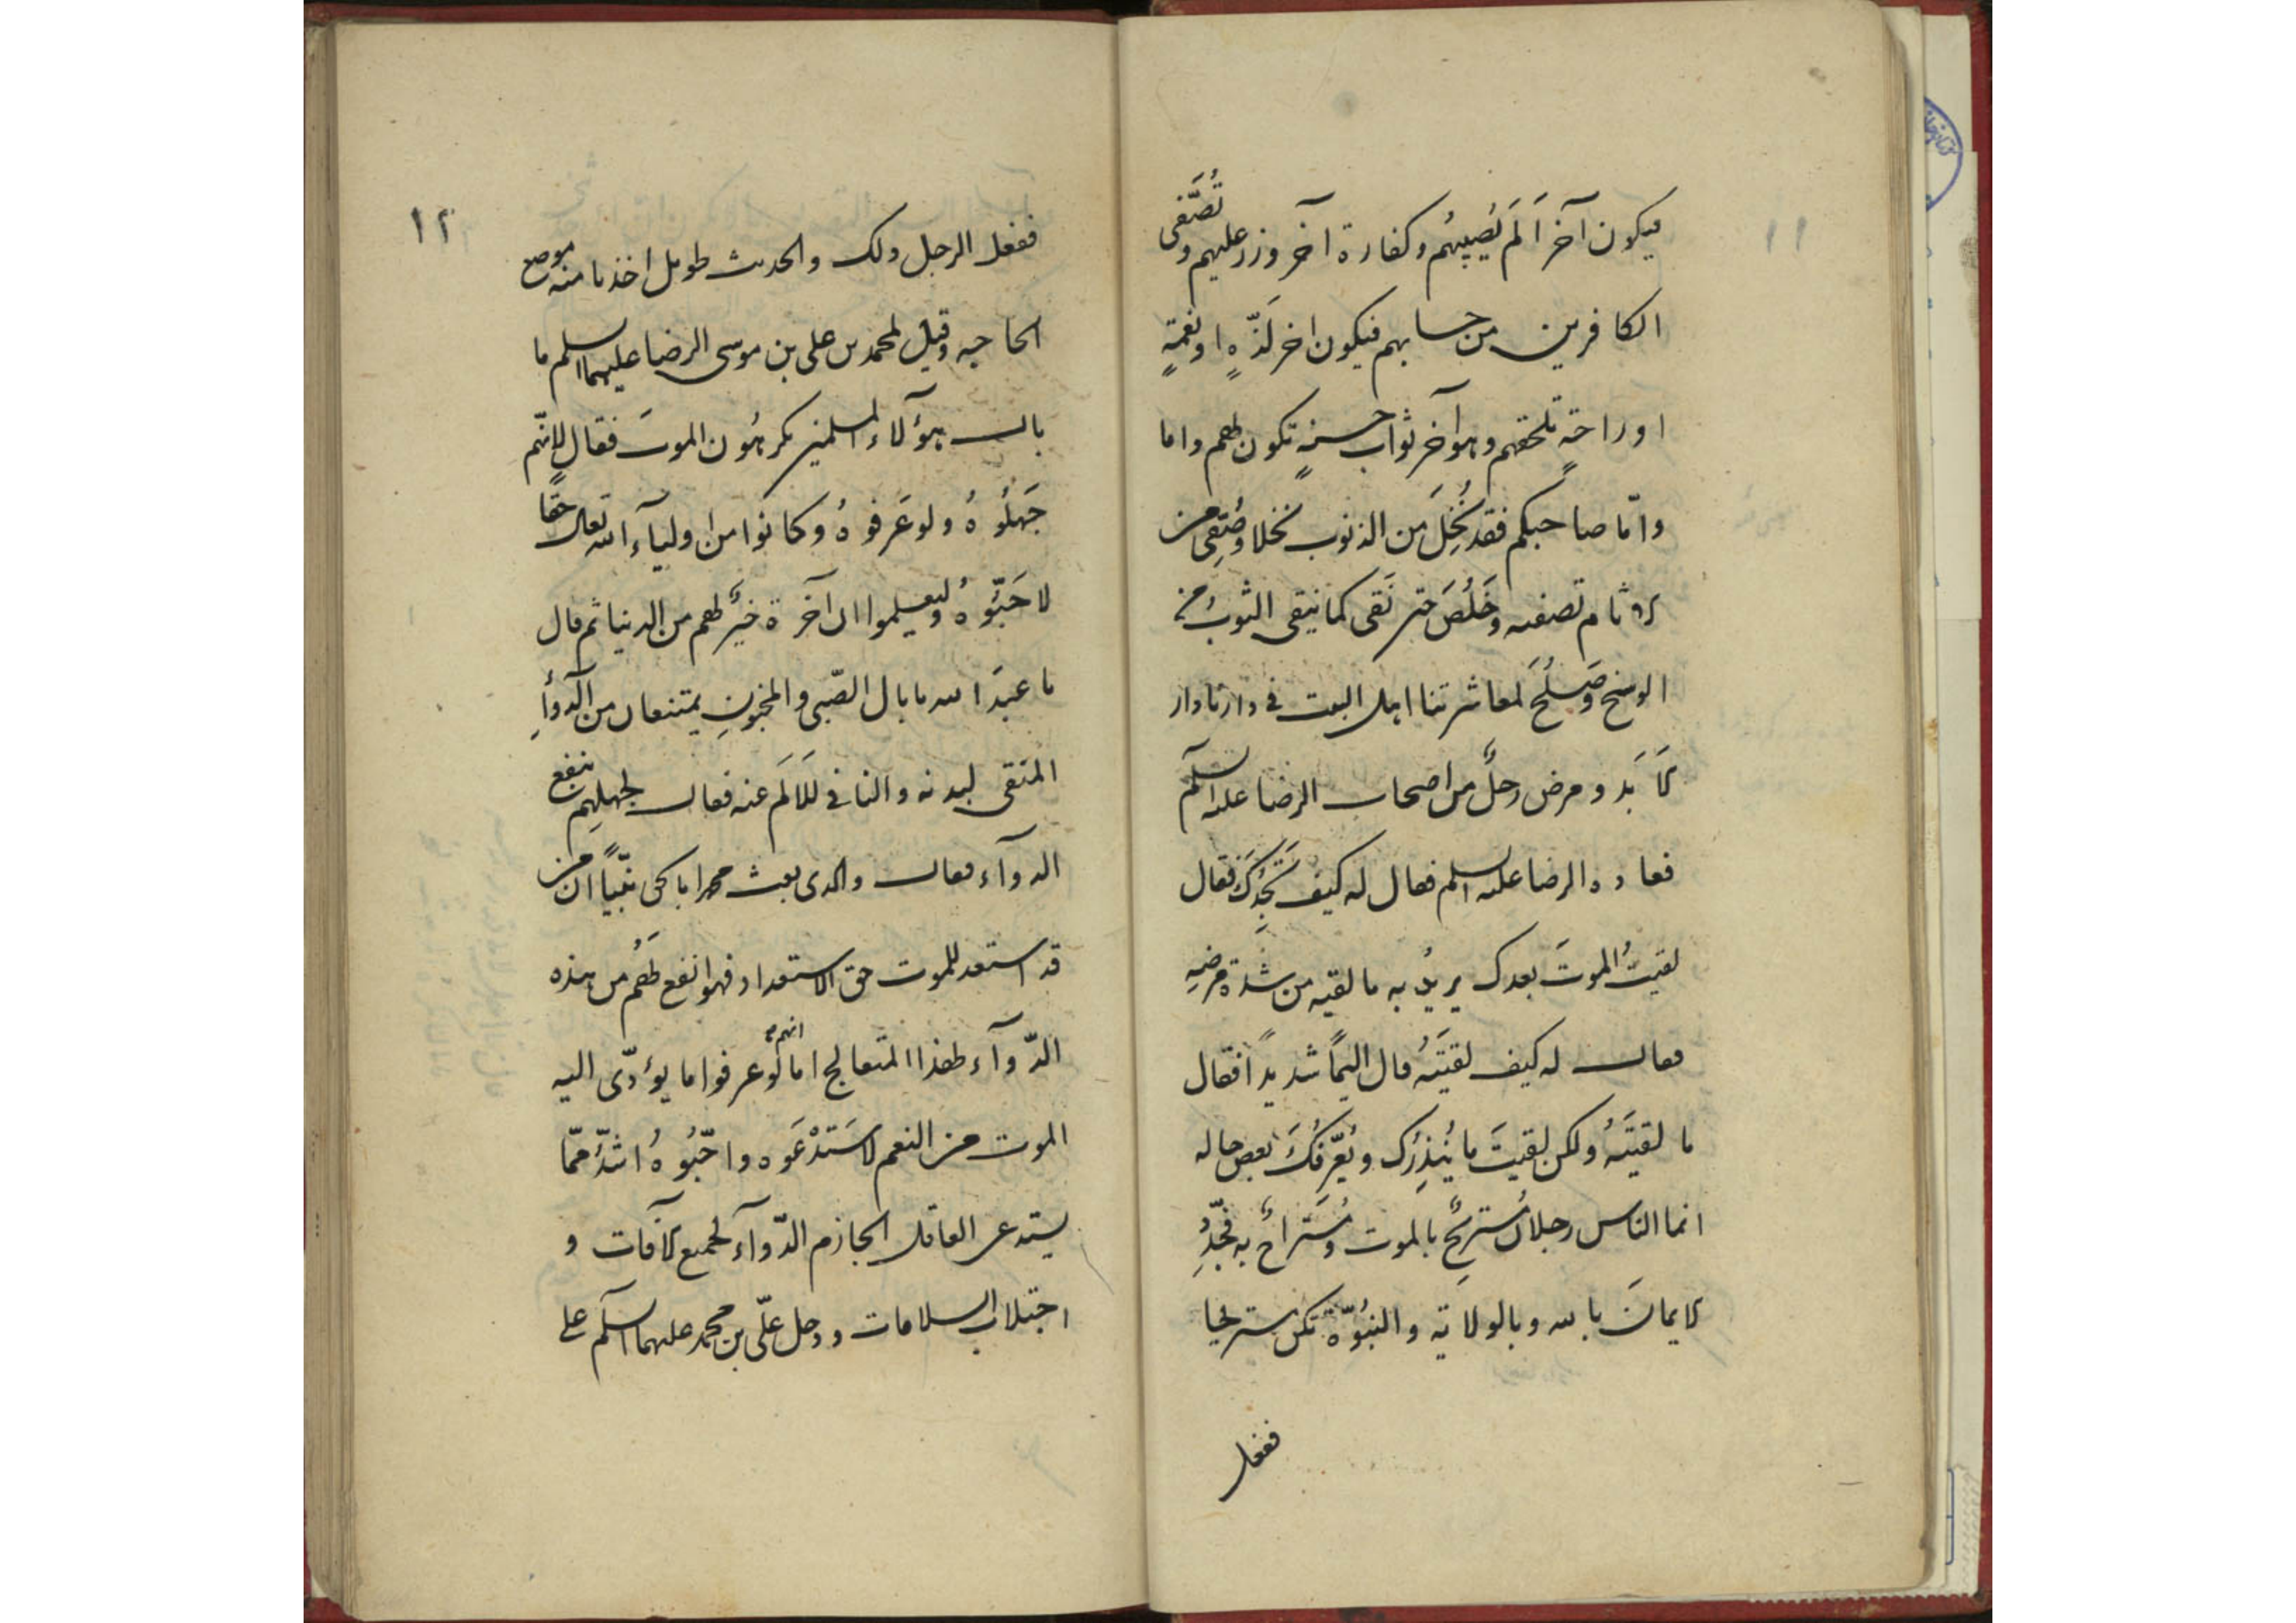 ١١
فيكون آخر اَلَمٍ يُصيبُهُم وكفارة آخر وزر عليهم وتُصَفّى
الكافرين من حسابهم فيكون اخر لَذّهٍ او نعمَةٍ
او راحةٍ تلحقهم وهو آخر ثواب حسنهٍ تكون لهم واما
وامّا صاحبكم فقد نُخِلَ من الذنوب نخلا وصُفِّى من
الاثام تصفيه وخَلُصَ حتى نَقى كما ينقى الثوبُ من
الوسخ وصَلُحَ لمعاشرتنا اهل البيت فى دارنا دار
الاَبَد ومرض رجلٌ من اصحاب الرضا عليه السلم
فعاده الرضا عليه السلم فقال له كيف تَجِدُكَ فقال
لقيتُ الموتَ بعدك يريدُ به ما لقيه من شدة مرضِهِ
فقال له كيف لقيتَهُ قال اليمًا شديدًا فقال
ما لقيتَهُ ولكن لقيتَ ما يُنذِرُك ويُعَّرِفُكَ بعض حاله
انما الناس رجلان مُستَريحٌ بالموت ومُستَراحٌ به فجَدِّدِ
الايمانَ بالله وبالولاية والنبُوّة تكن مستريحا
ففعل
١٢
ففعل الرجل ذلك والحديث طويل اخذنا منه موضع
الحاجه وقيل لمحمد بن على بن موسى الرضا عليهما السلم ما
بال هؤلآء المسلمين يكرهُون الموتَ فقال لِانّهم
جَهِلُوهُ ولو عَرفوهُ وكانوا من اوليآء الله تعالى حقًا
لاحَبّوهُ وليعلموا ان الآخرة خيرٌ لهم من الدنيا ثم قال
يا عبدَ الله ما بال الصّبى والمجنونِ يمتنعان من الدّوآءِ
المنقى لبدنه والنافى للاَلَم عنه فقال لجهلِهِم بنفع
الدوآء فقال والذى بعث محمدا بالحق نبّيًا ان من
قد استعد للموت حق الاستعداد فهو انفع لهُم من هذه
الدّوآء لهذا المتعالج اما انهم لو عرفوا ما يؤدّى اليه
الموت من النعم لاستَدْعَوه واحَبّوُهُ اشدّ ممّا
يستدعى العاقل الحازم الدّوآء لدفع الآفات و
اجتلاب السلامات ودخل علّى بن محمد عليهما السلم على